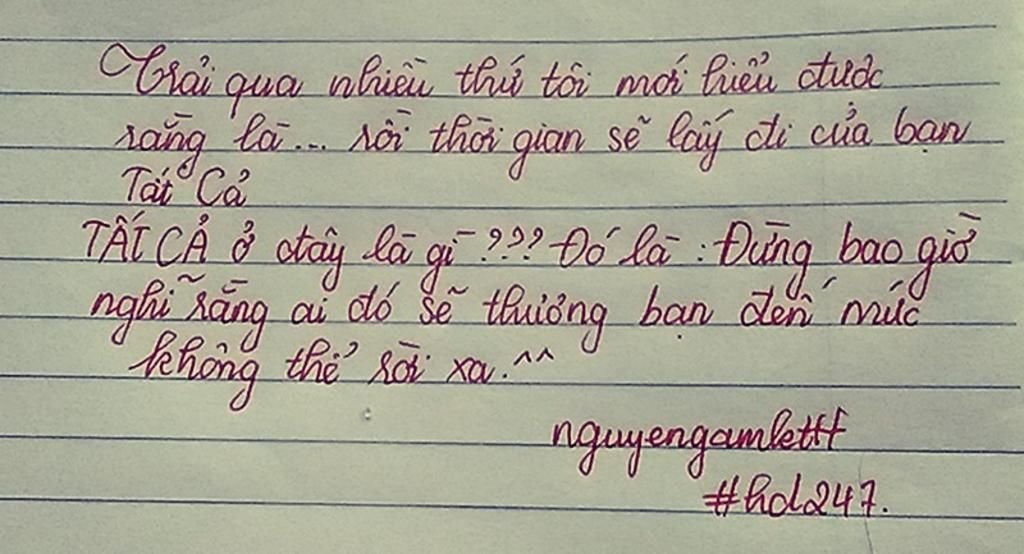 Trải qua nhiều thứ tôi mới hiểu được
rằng là... rồi thời gian sẽ lấy đi của bạn
Tất Cả
TẤT CẢ ở đây là gì ??? Đó là : Đừng bao giờ
nghĩ rằng ai đó sẽ thương bạn đến mức
không thể rời xa.^^
nguyengamlettt
#hd247.